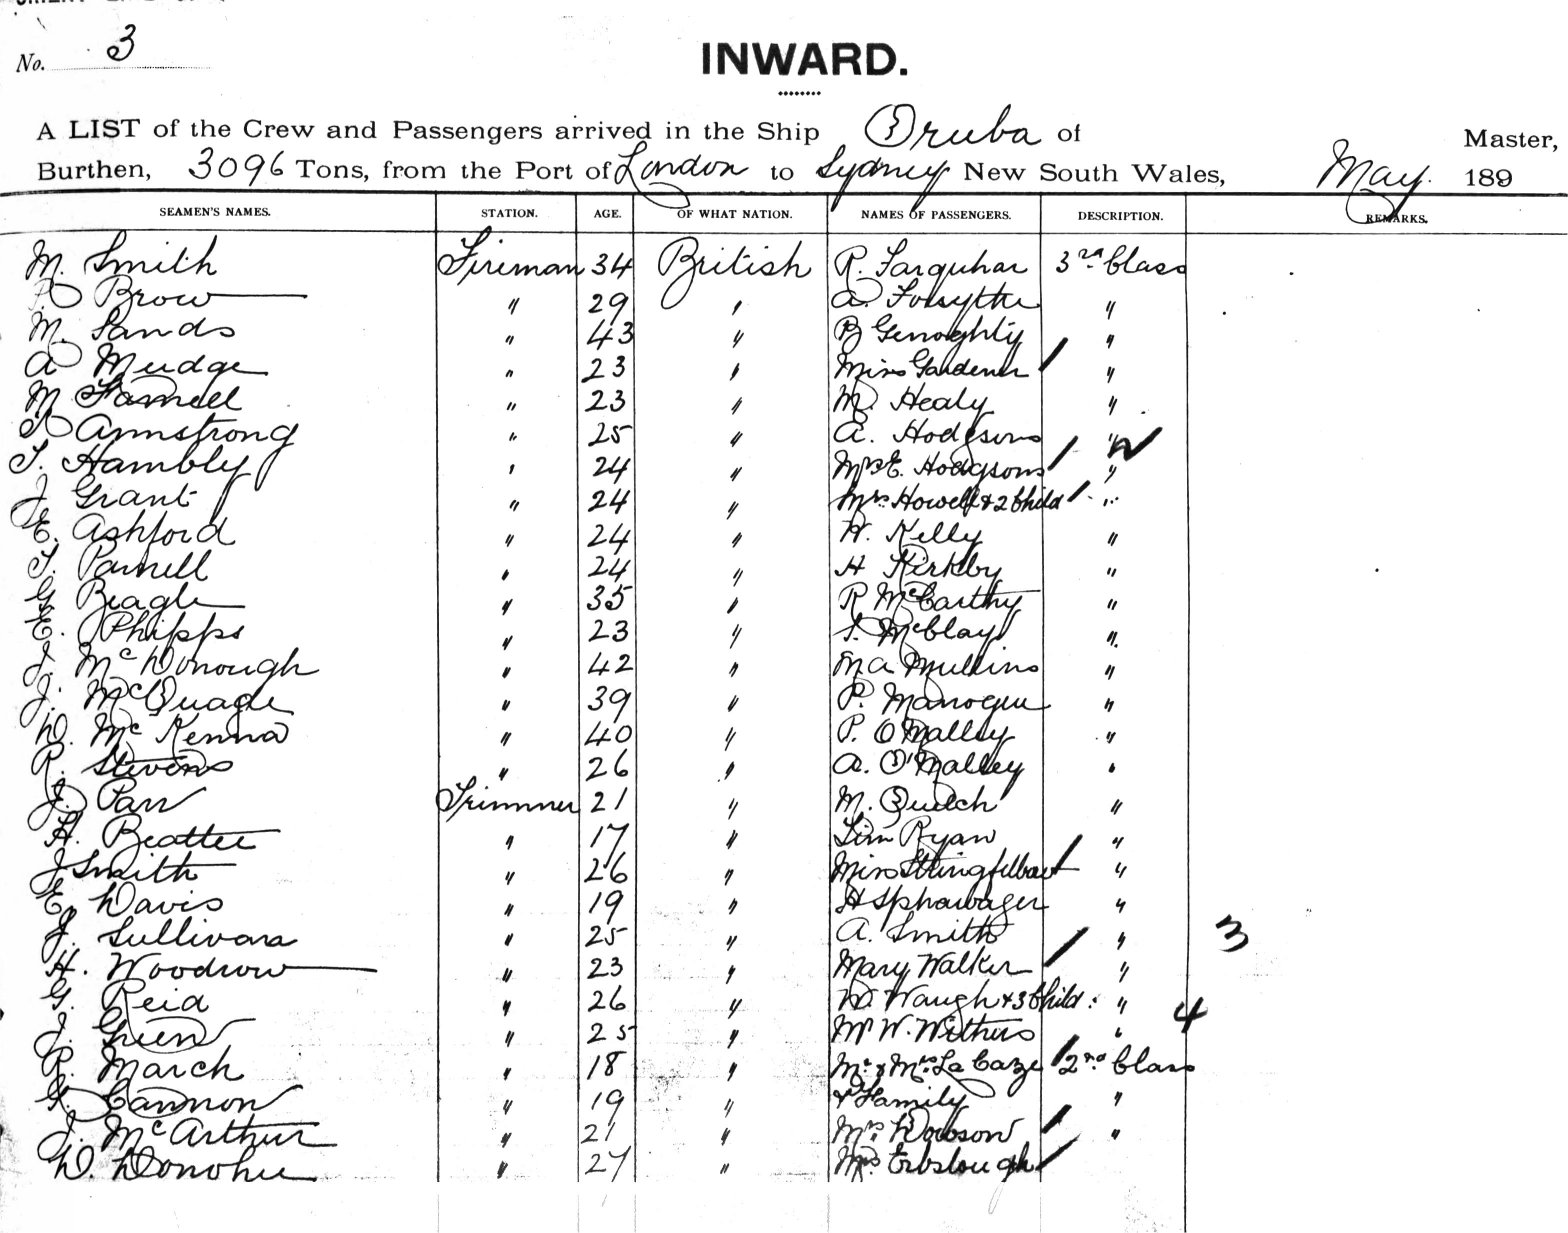 No. 3
INWARD.
A LIST of the Crew and Passengers arrived in the Ship Oruba of Master,
Burthen, 3096 Tons, from the Port of London to Sydney New South Wales, May. 189
SEAMEN'S NAMES. STATION. AGE. OF WHAT NATION. NAMES OF PASSENGERS. DESCRIPTION. REMARKS.
M. Smith Fireman 34 British R. Farquhar 3rd Class
Brow " 29 " A. Forsythe "
M. Sands " 43 " B Genoghty "
A Mudge " 23 " Miss Gardener "
M " 23 " M. Healy "
Armstrong " 25 " A. Hodgsons "
T. Hambly " 24 " Mrs E. Hodgsons "
J Grant " 24 " Mrs Howell & 2 Child "
E. Ashford " 24 " W. Kelly "
T. Parnell " 24 " H Kirkby "
G Beagle " 35 " R McCarthy "
E. Phipps " 23 " S. McClay "
J. McDonough " 42 " M A Mullins "
J. McQuade " 39 " P. Manogue "
D. McKenna " 40 " P. O'Malley "
R. Stevens " 26 " A. O'Malley "
J. Parr Trimmer 21 " M. Quilch "
H. Beattee " 17 " Tim Ryan "
J Smith " 26 " Miss "
E. Davis " 19 " H Sphawager "
J. Sullivan " 25 " A. Smith " 3
H. Woodrow " 23 " Mary Walker "
G. Reid " 26 " W. Waugh & 3 Child: " 4
J. Green " 25 " Mr W. Withers "
R. March " 18 " Mr & Mrs La Caze 2nd Class
G. Cannon " 19 " & Family "
J. McArthur " 21 " Mrs Dowson "
D. Donohue " 27 " Mrs Erbslough